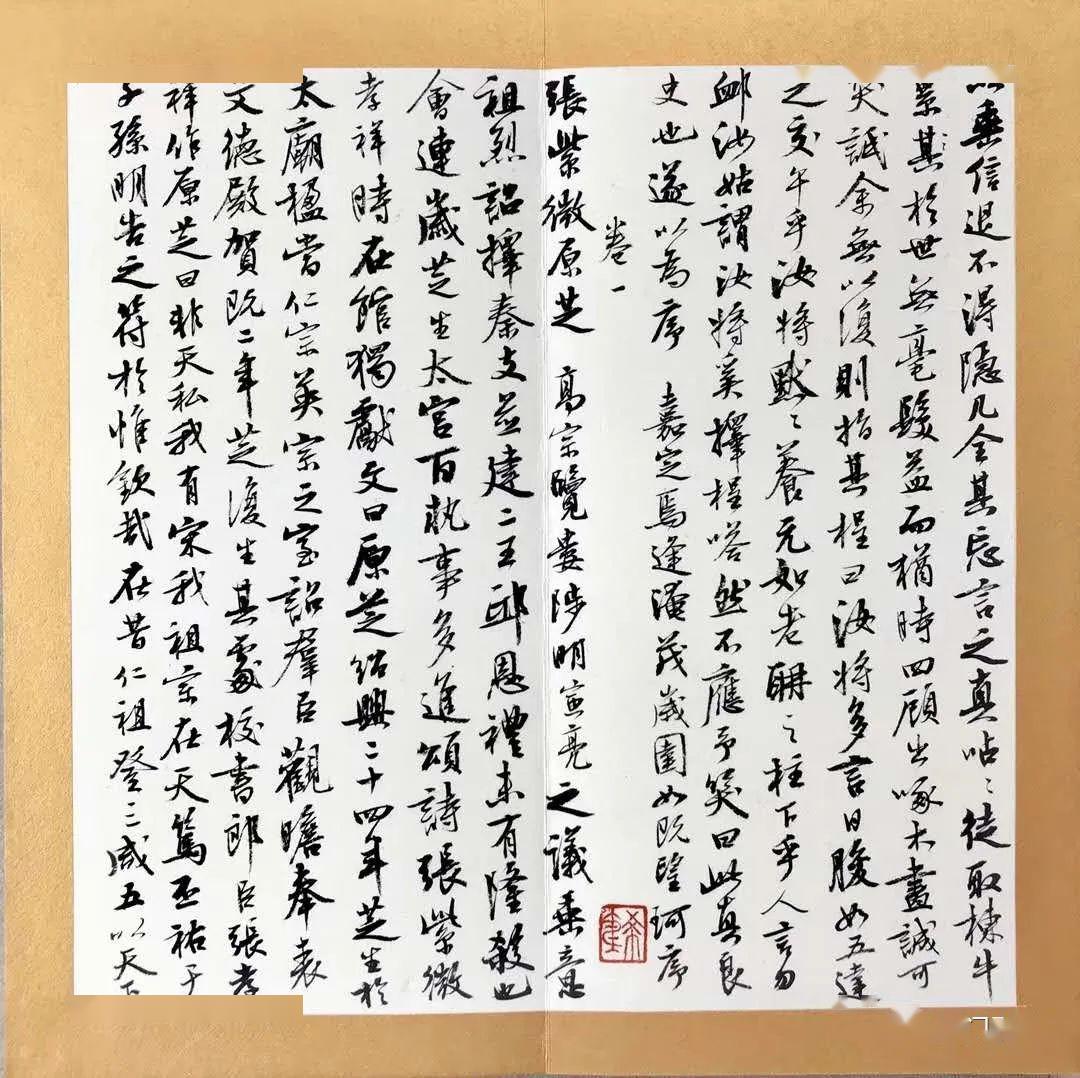 以垂信退不得隐几全其忘言之真呫々徒取棟牛
累其於世無毫髮益而猶時四顧出啄木盡誠可
笑詆余無以復則指其桯曰汝將多言日朘如五達
之交午乎汝將默々養元如老聃之柱下乎人言勿
卹汝姑謂汝將奚擇桯嗒然不應予笑曰此真良
史也遂以為序 嘉定焉逢淹茂歲圉如既望珂序
卷一
張紫微原芝 高宗覽婁陟明寅亮之議垂意
祖烈詔擇秦支並建二王邸恩禮未有隆殺也
會連歲芝生太宮百執事多進頌詩張紫微
孝祥時在館獨獻文曰原芝紹興二十四年芝生於
太廟楹當仁宗英宗之室詔羣臣觀瞻奉表
文德殿賀既二年芝復生其處校書郎臣張孝
祥作原芝曰非天私我有宋我祖宗在天篤丕祐于
子孫明告之符於惟欽哉在昔仁祖登三咸五以天下